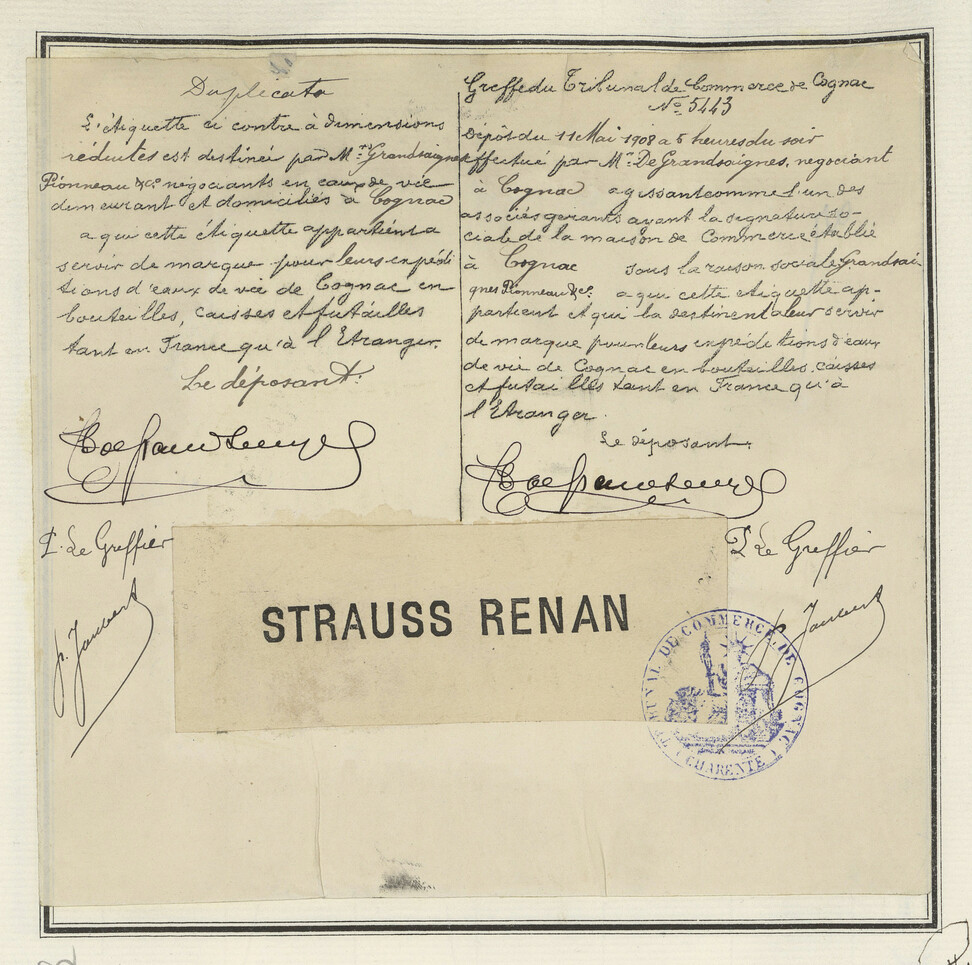 Duplicata
L'étiquette ci contre à dimensions
réduites est destinée par Mrs Grandsaignes
Pionneau & Ce négociants en eaux de vie
demeurant et domiciliés à Cognac
a qui cette étiquette appartient a
servir de marque pour leurs expédi
tions d'eaux de vie de Cognac en
bouteilles, caisses et futailles
tant en France qu'à l'Etranger.
Le déposant.
P. Le Greffier
Greffe du Tribunal de Commerce de Cognac
No 5443
Dépôt du 11 Mai 1908 a 5 heures du soir
effectué par Mr De Grandsaignes, négociant
à Cognac agissant comme l'un des
associés gerants ayant la signature so-
ciale de la maison de Commerce établie
à Cognac sous la raison sociale Grandsai
gnes Pionneau & Ce. a qui cette etiquette ap-
partient et qui la destinent a leur servir
de marque pour leurs expéditions d'eaux
de vie de Cognac en bouteilles, caisses
et futailles tant en France qu'à
l'Etranger.
Le déposant.
P Le Greffier
STRAUSS RENAN
TRIBUNAL DE COMMERCE DE COGNAC
(CHARENTE)